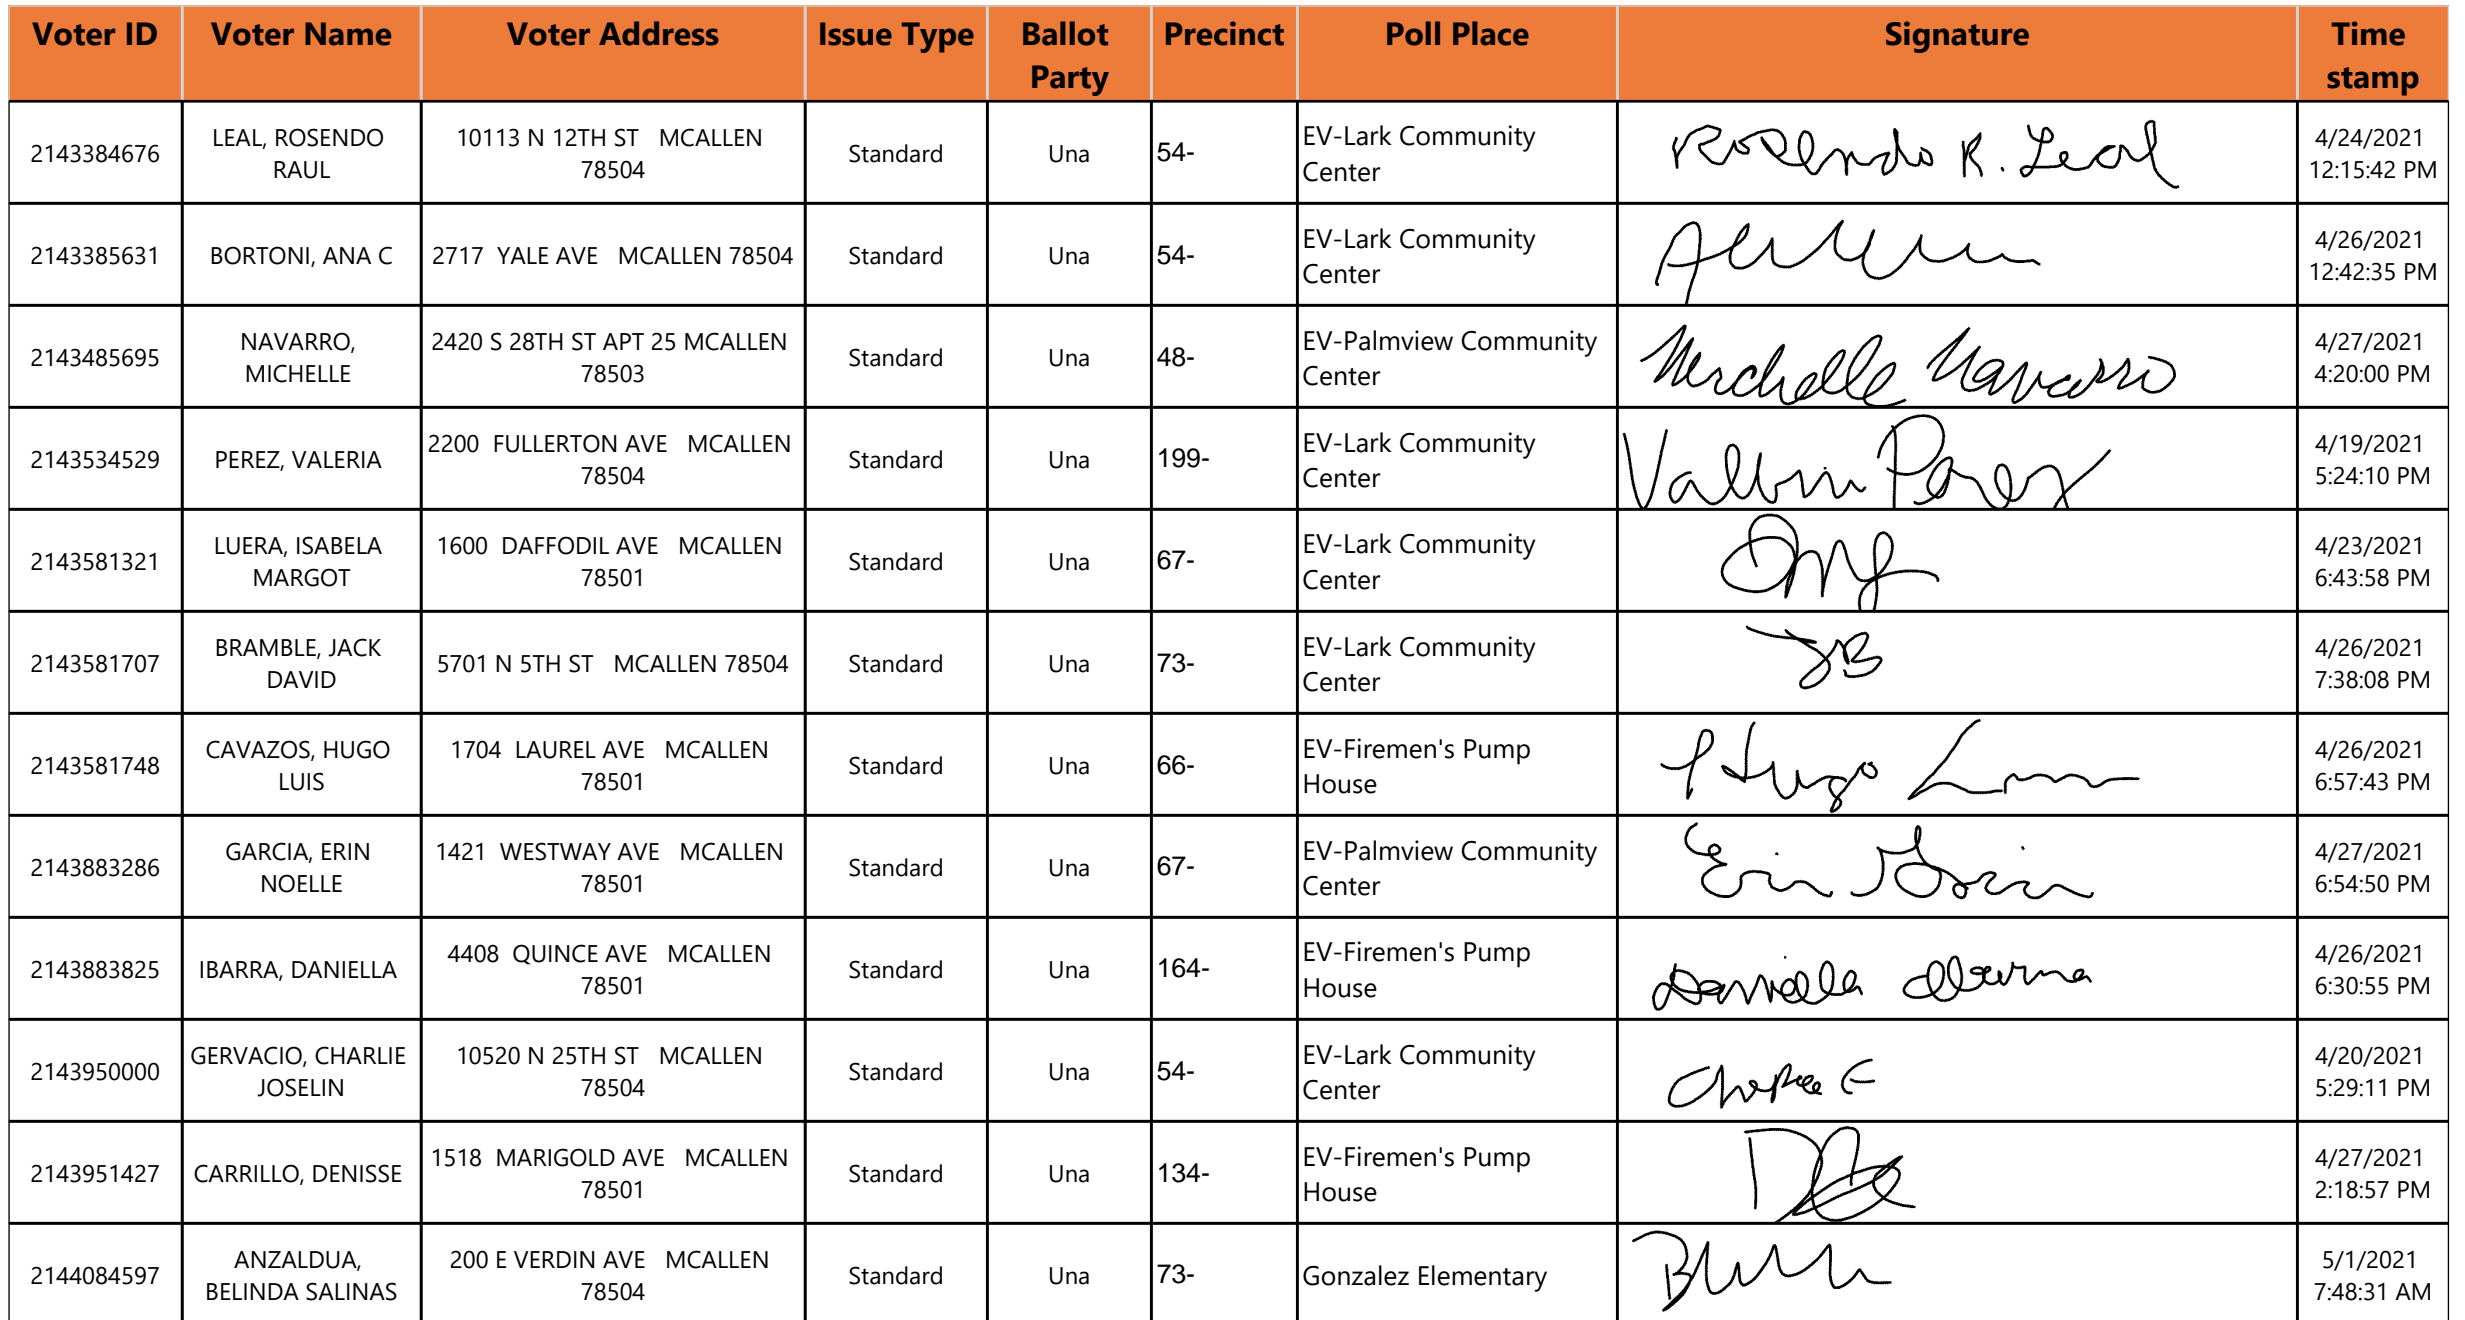 Voter ID Voter Name Voter Address Issue Type Ballot Party Precinct Poll Place Signature Time stamp
2143384676 LEAL, ROSENDO RAUL 10113 N 12TH ST MCALLEN 78504 Standard Una 54- EV-Lark Community Center Rosendo R. Leal 4/24/2021 12:15:42 PM
2143385631 BORTONI, ANA C 2717 YALE AVE MCALLEN 78504 Standard Una 54- EV-Lark Community Center 4/26/2021 12:42:35 PM
2143485695 NAVARRO, MICHELLE 2420 S 28TH ST APT 25 MCALLEN 78503 Standard Una 48- EV-Palmview Community Center Michelle Navarro 4/27/2021 4:20:00 PM
2143534529 PEREZ, VALERIA 2200 FULLERTON AVE MCALLEN 78504 Standard Una 199- EV-Lark Community Center Valeria Perez 4/19/2021 5:24:10 PM
2143581321 LUERA, ISABELA MARGOT 1600 DAFFODIL AVE MCALLEN 78501 Standard Una 67- EV-Lark Community Center 4/23/2021 6:43:58 PM
2143581707 BRAMBLE, JACK DAVID 5701 N 5TH ST MCALLEN 78504 Standard Una 73- EV-Lark Community Center JB 4/26/2021 7:38:08 PM
2143581748 CAVAZOS, HUGO LUIS 1704 LAUREL AVE MCALLEN 78501 Standard Una 66- EV-Firemen's Pump House Hugo 4/26/2021 6:57:43 PM
2143883286 GARCIA, ERIN NOELLE 1421 WESTWAY AVE MCALLEN 78501 Standard Una 67- EV-Palmview Community Center Erin Garcia 4/27/2021 6:54:50 PM
2143883825 IBARRA, DANIELLA 4408 QUINCE AVE MCALLEN 78501 Standard Una 164- EV-Firemen's Pump House Daniella Ibarra 4/26/2021 6:30:55 PM
2143950000 GERVACIO, CHARLIE JOSELIN 10520 N 25TH ST MCALLEN 78504 Standard Una 54- EV-Lark Community Center Charlie G 4/20/2021 5:29:11 PM
2143951427 CARRILLO, DENISSE 1518 MARIGOLD AVE MCALLEN 78501 Standard Una 134- EV-Firemen's Pump House 4/27/2021 2:18:57 PM
2144084597 ANZALDUA, BELINDA SALINAS 200 E VERDIN AVE MCALLEN 78504 Standard Una 73- Gonzalez Elementary 5/1/2021 7:48:31 AM